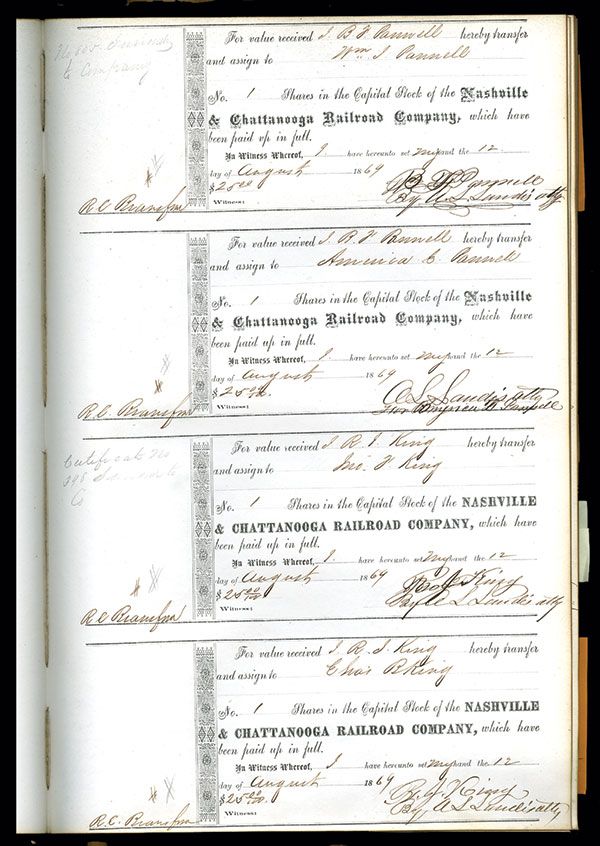 For value received I B F Pannell hereby transfer
and assign to Wm I Pannell
No. 1 Shares in the Capital Stock of the Nashville
& Chattanooga Railroad Company, which have
been paid up in full.
In Witness Whereof, I have hereunto set my hand the 12
day of August 1869
$25 00
B F Pannell
By A L Landis atty
Witness:
R C Bransford
For value received I B F Pannell hereby transfer
and assign to America C Pannell
No. 1 Shares in the Capital Stock of the Nashville
& Chattanooga Railroad Company, which have
been paid up in full.
In Witness Whereof, I have hereunto set my hand the 12
day of August 1869
$25 00
A L Landis atty
for Pannell
Witness:
R. C. Bransford
Certificate No
398
Co
For value received I R J King hereby transfer
and assign to Jno. F King
No. 1 Shares in the Capital Stock of the NASHVILLE
& CHATTANOOGA RAILROAD COMPANY, which have
been paid up in full.
In Witness Whereof, I have hereunto set my hand the 12
day of August 1869
$25 00/100
R J King
By A L Landis atty
Witness:
R C Bransford
For value received I R. J. King hereby transfer
and assign to Chas B King
No. 1 Shares in the Capital Stock of the NASHVILLE
& CHATTANOOGA RAILROAD COMPANY, which have
been paid up in full.
In Witness Whereof, I have hereunto set my hand the 12
day of August 1869
$25 00/100
R. J. King
By A L Landis atty
Witness:
R. C. Bransford